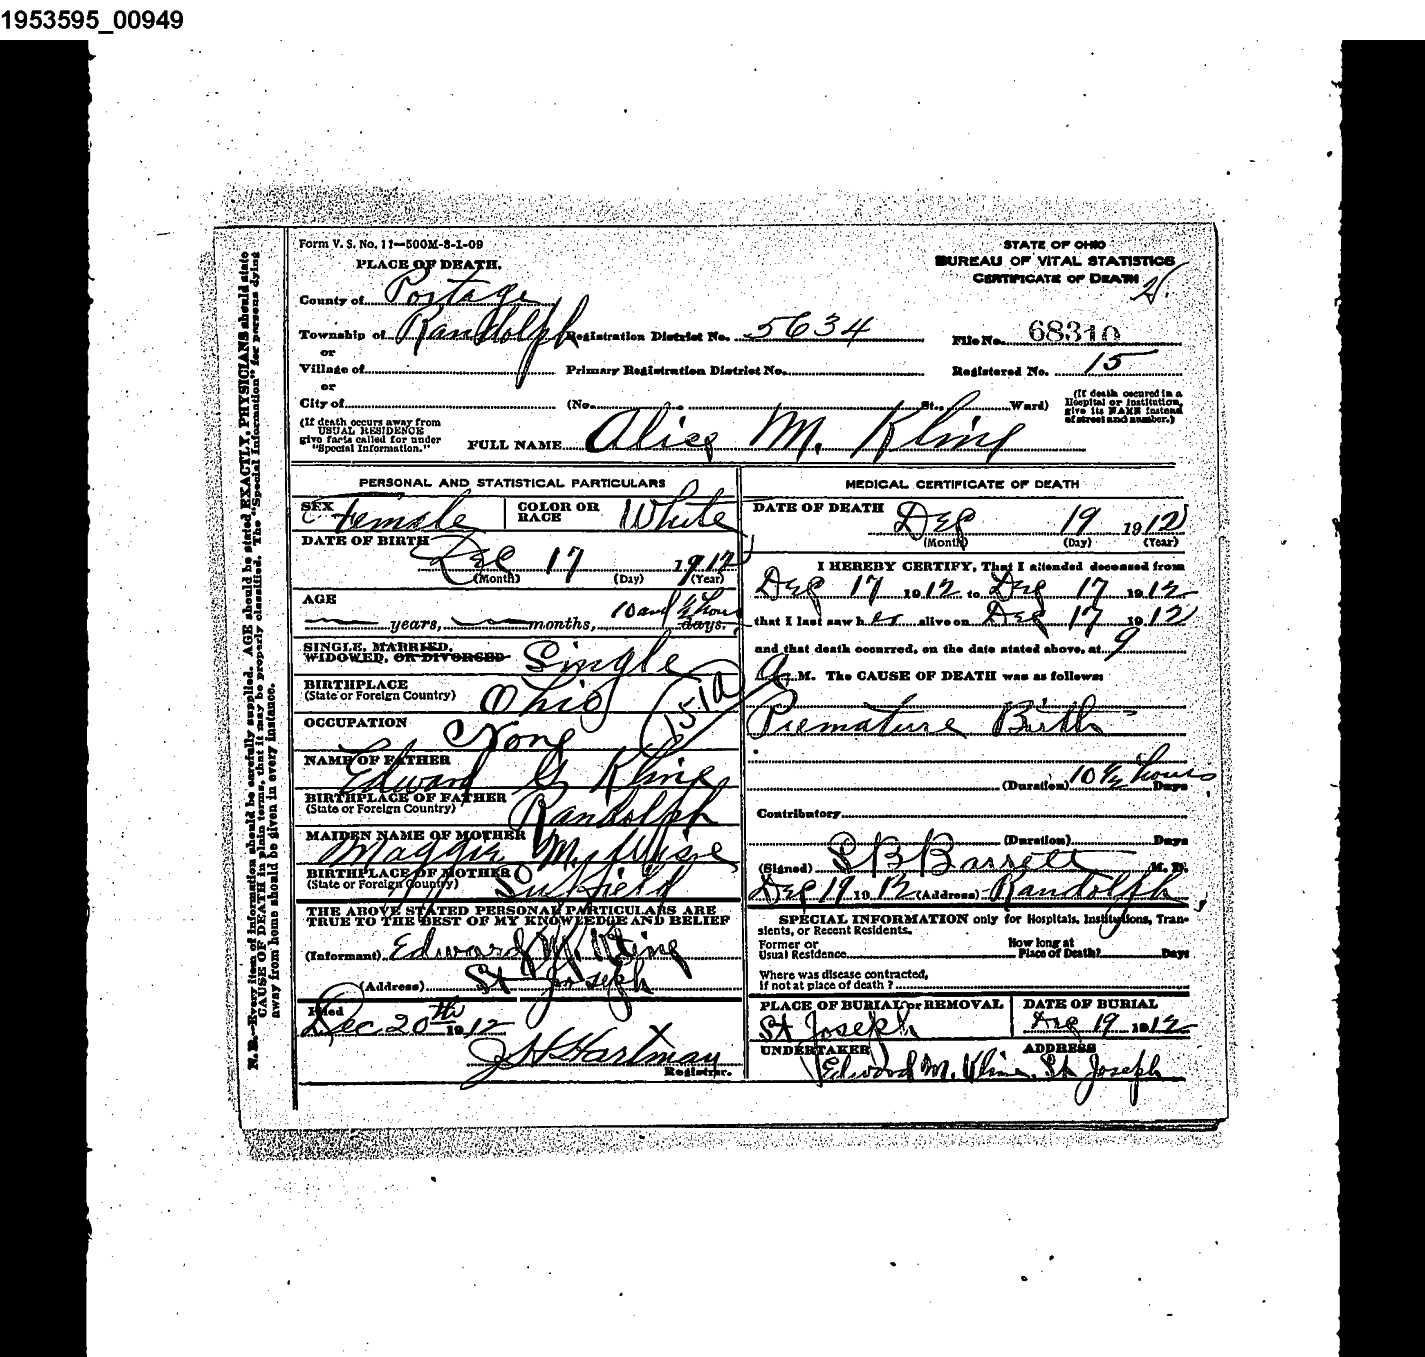 1953595_00949
Form V. S. No. 11—500M-8-1-09
STATE OF OHIO
BUREAU OF VITAL STATISTICS
CERTIFICATE OF DEATH
PLACE OF DEATH.
County of Portage
Township of Randolph Registration District No. 5634 File No. 68310
or
Village of Primary Registration District No. Registered No. 15
or
City of (No. St., Ward) (If death occured in a Hospital or Institution, give its NAME instead of street and number.)
(If death occurs away from USUAL RESIDENCE give facts called for under "Special Information.")
FULL NAME Alice M. Kling
PERSONAL AND STATISTICAL PARTICULARS
SEX Female COLOR OR RACE White
DATE OF BIRTH Dec 17 1912
(Month) (Day) (Year)
AGE
years, months, 10 and ½ hours days.
SINGLE, MARRIED, WIDOWED, OR DIVORCED Single
BIRTHPLACE
(State or Foreign Country) Ohio
OCCUPATION None
151a
NAME OF FATHER Edward G Kling
BIRTHPLACE OF FATHER
(State or Foreign Country) Randolph
MAIDEN NAME OF MOTHER
Maggie M.
BIRTHPLACE OF MOTHER
(State or Foreign Country) Suffield
THE ABOVE STATED PERSONAL PARTICULARS ARE
TRUE TO THE BEST OF MY KNOWLEDGE AND BELIEF
(Informant) Edward M. Kling
(Address) St Joseph
Filed
Dec 20th 1912
J H Hartman
Registrar.
MEDICAL CERTIFICATE OF DEATH
DATE OF DEATH Dec 19 1912
(Month) (Day) (Year)
I HEREBY CERTIFY, That I attended deceased from
Dec 17 1912 to Dec 17 1912
that I last saw her alive on Dec 17 1912
and that death occurred, on the date stated above, at 9
a M. The CAUSE OF DEATH was as follows:
Premature Birth
(Duration) 10 ½ hours Days
Contributory
(Duration) Days
(Signed) S B Barrett M. D.
Dec 19 1912 (Address) Randolph
SPECIAL INFORMATION only for Hospitals, Institutions, Tran-
sients, or Recent Residents.
Former or
Usual Residence
How long at
Place of Death? Days
Where was disease contracted,
If not at place of death ?
PLACE OF BURIAL or REMOVAL DATE OF BURIAL
St Joseph Dec 19 1912
UNDERTAKER ADDRESS
Edward M. Kling St Joseph
N. B.—Every item of information should be carefully supplied. AGE should be stated EXACTLY. PHYSICIANS should state
CAUSE OF DEATH in plain terms, that it may be properly classified. The "Special Information" for persons dying
away from home should be given in every instance.